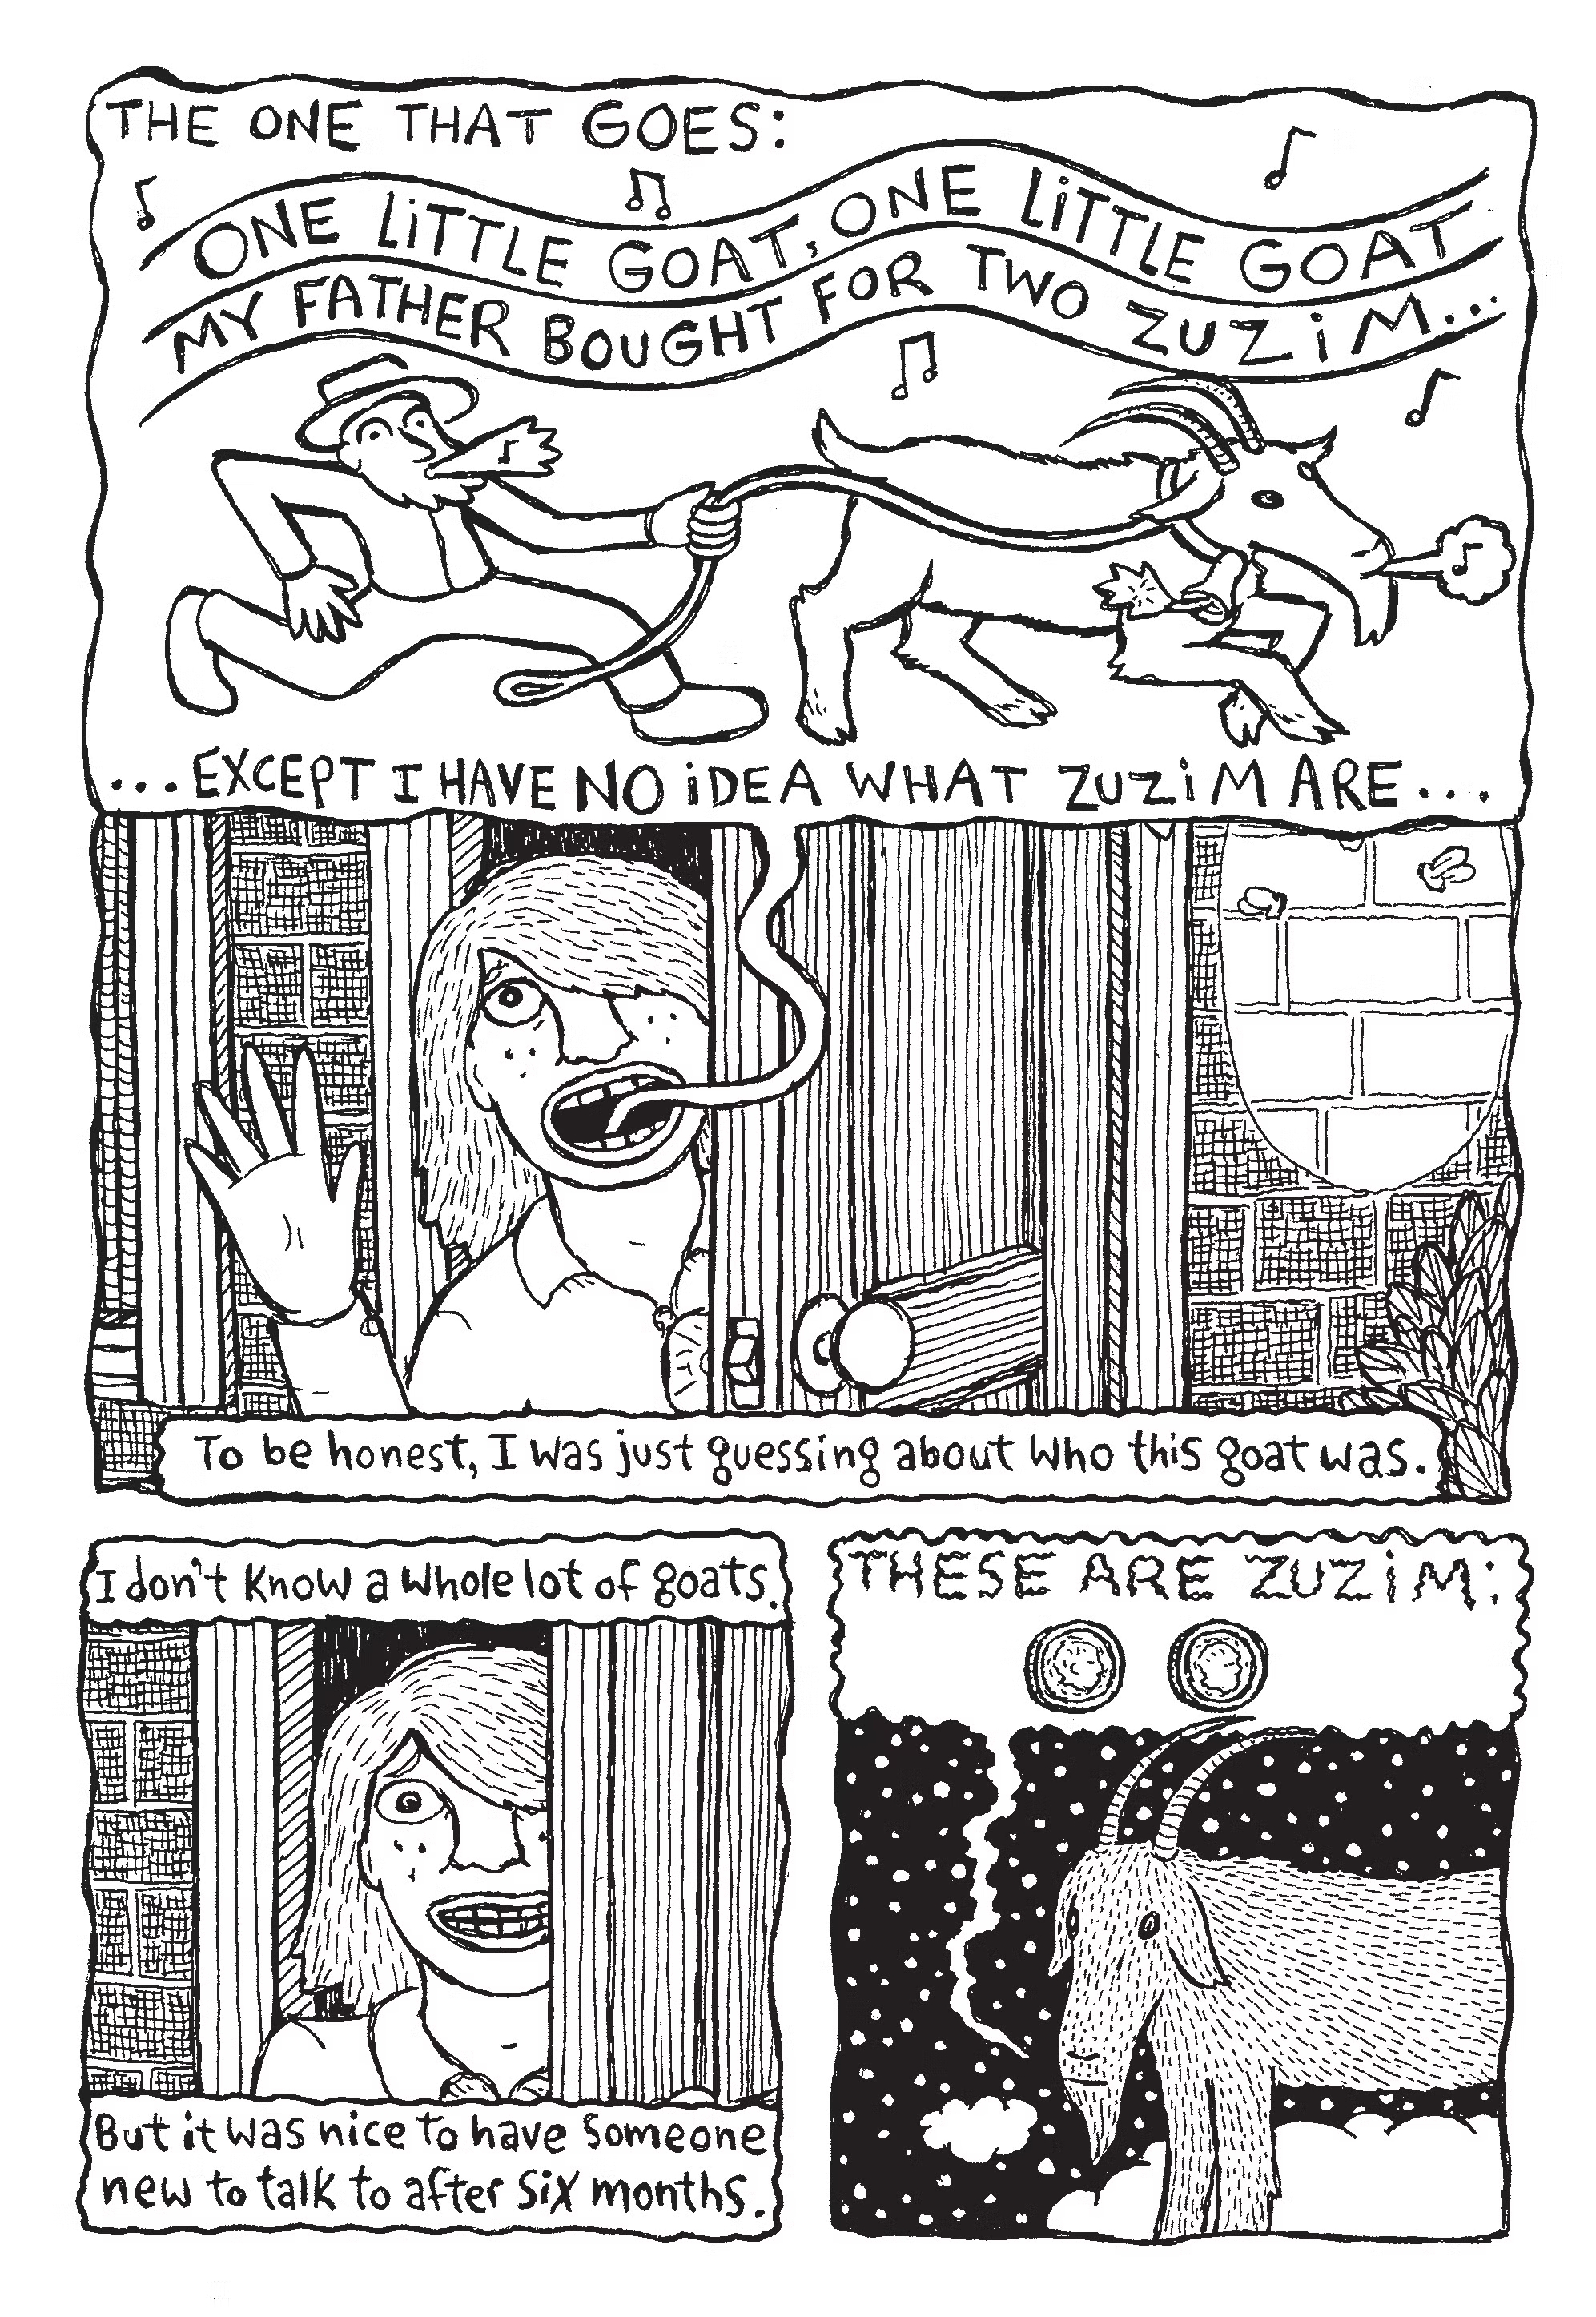 THE ONE THAT GOES:
ONE LiTTLE GOAT, ONE LiTTLE GOAT
MY FATHER BOUGHT FOR TWO ZUZiM...
...EXCEPT I HAVE NO iDEA WHAT ZUZiM ARE...
To be honest, I was just guessing about who this goat was.
I don't know a whole lot of goats.
But it was nice to have someone
new to talk to after six months.
THESE ARE ZUZiM: